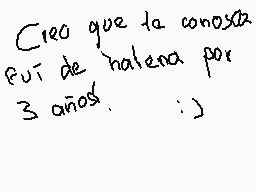 Creo que la conosco
fui de halena por
3 años. :)